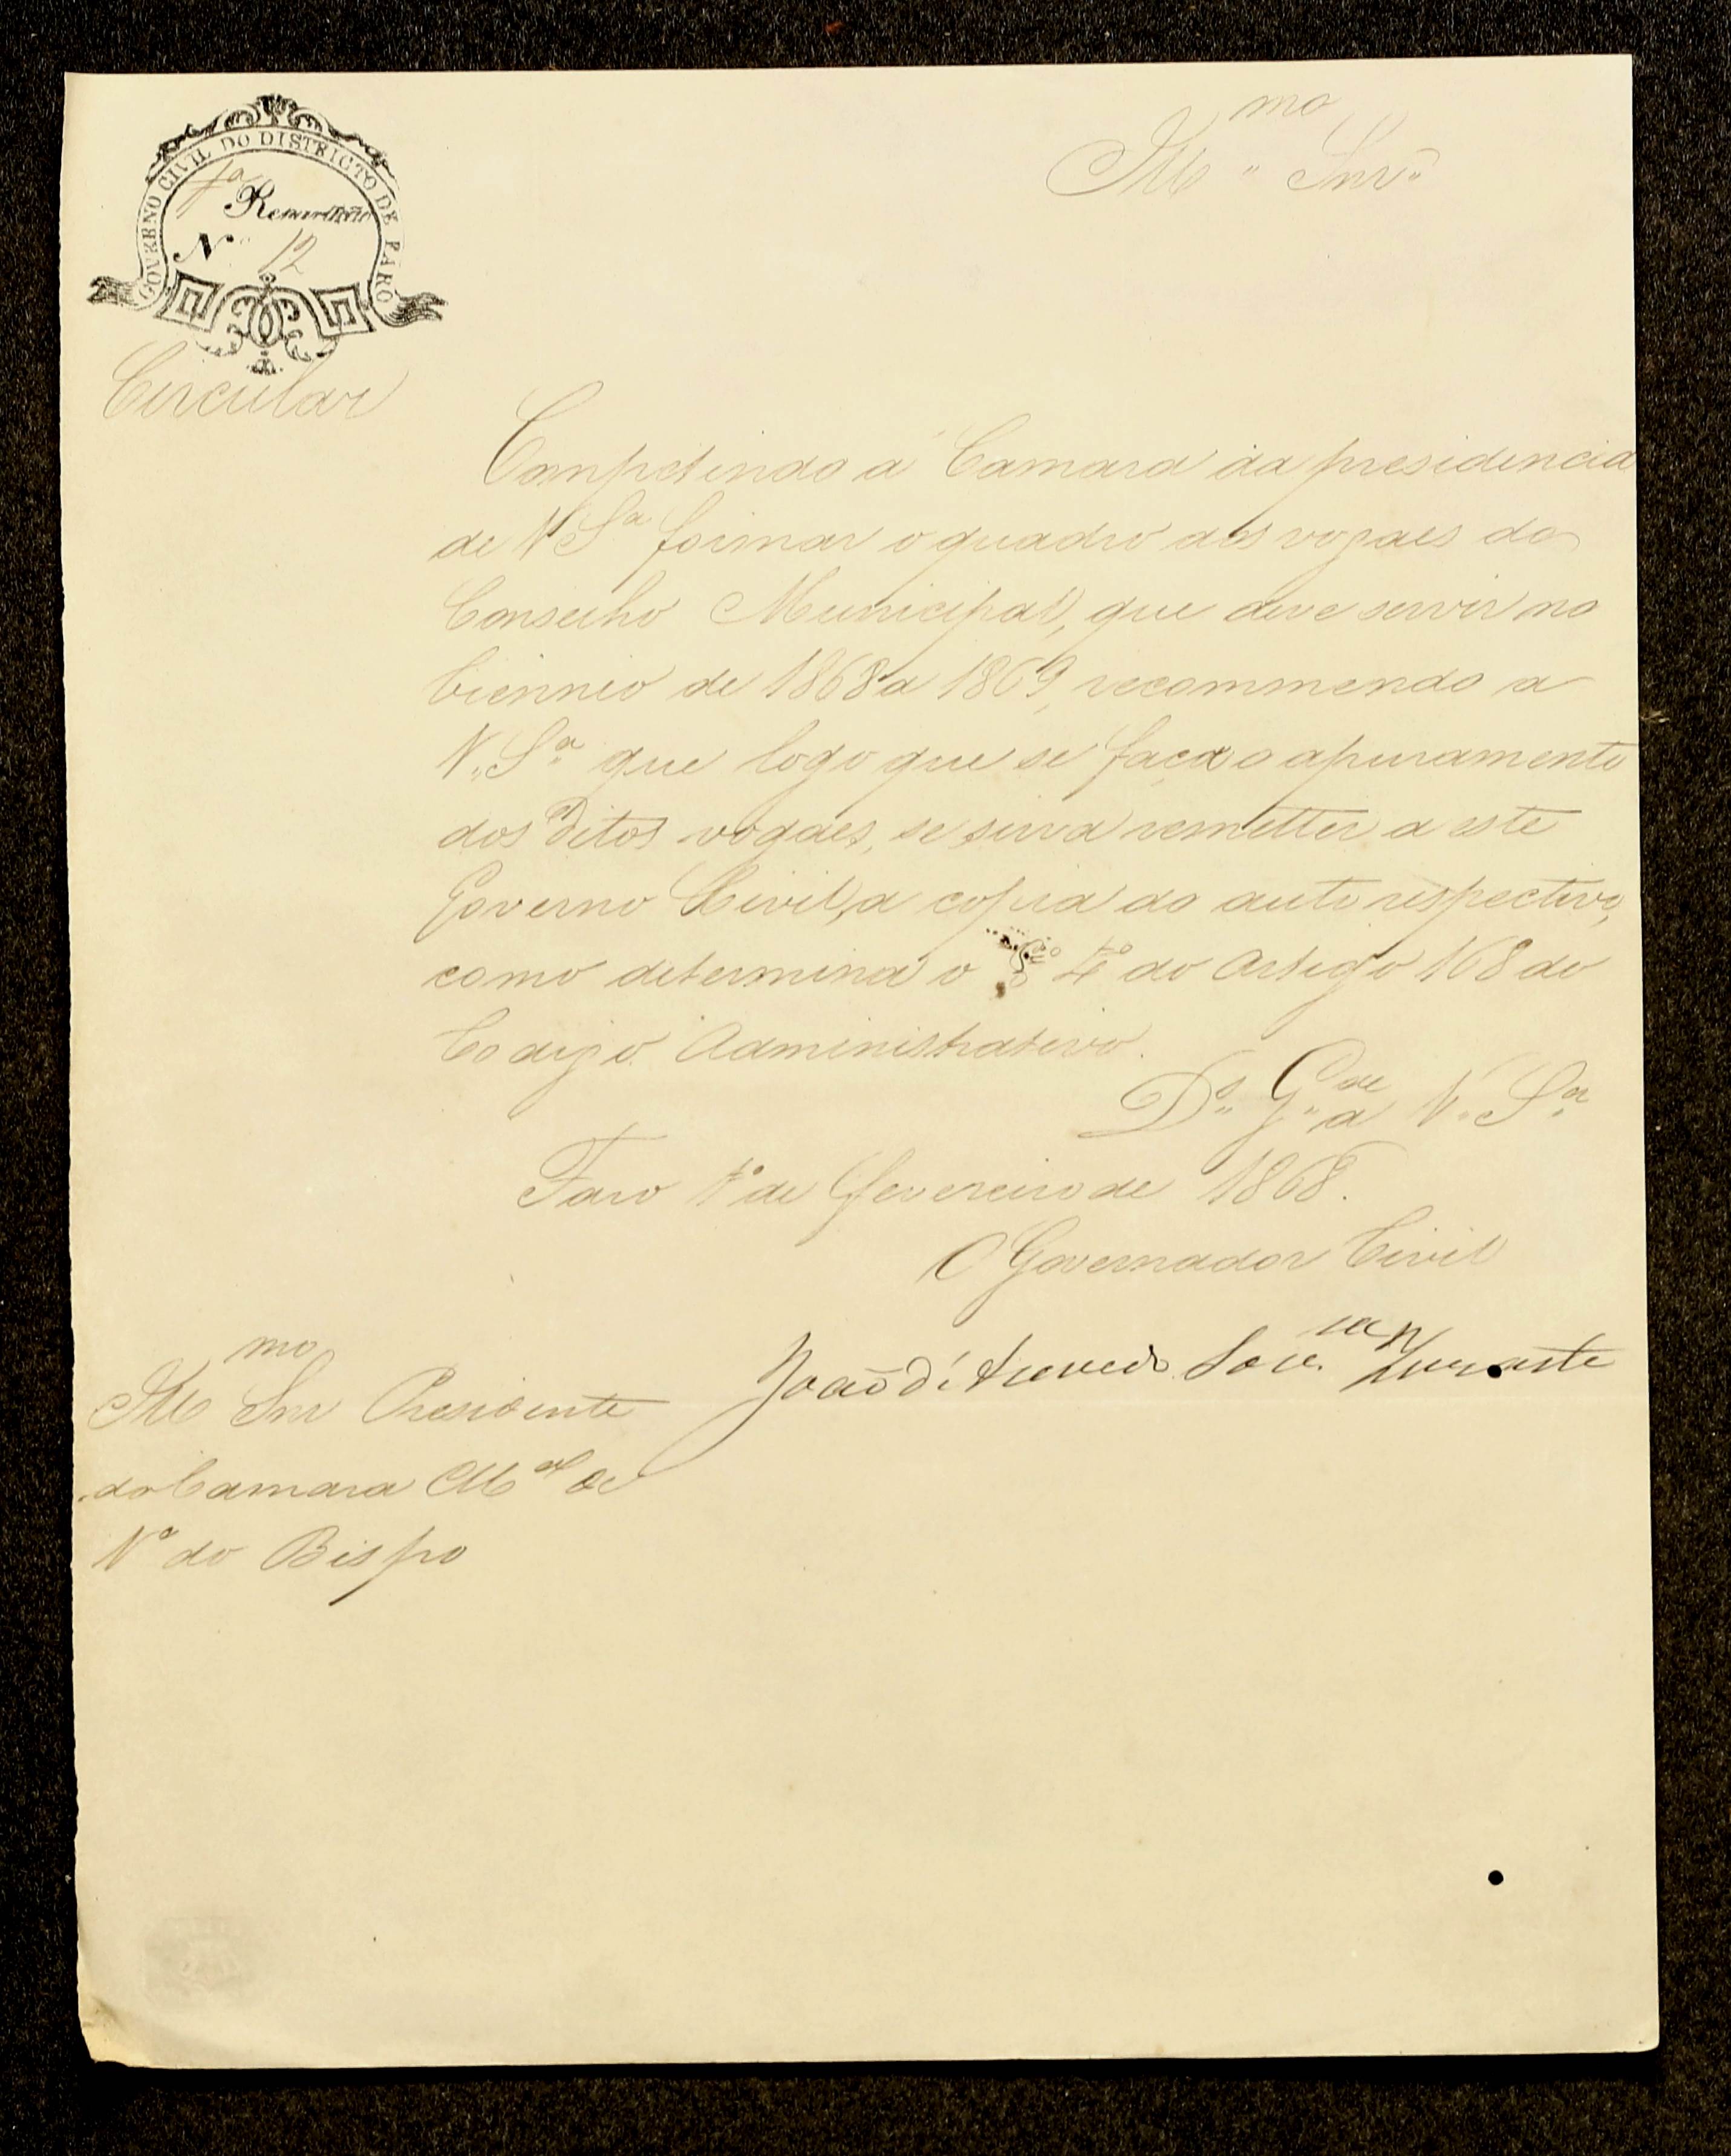 GOVERNO CIVIL DO DISTRICTO DE FARO
1ª Repartição
N.º 12
Circular
Illmo Snr.
Competindo á Camara da presidencia
de V Sª formar o quadro dos vogaes do
Conselho Municipal, que deve servir no
biennio de 1868 a 1869, recommendo a
V. Sª que logo que se faça o apuramento
dos ditos vogaes, se sirva remetter a este
Governo Civil, a copia do auto respectivo,
como determina o § 4º do Artigo 168 do
Codigo Administrativo.
Ds. Gde a V. Sª
Faro 1º de Fevereiro de 1868.
O Governador Civil
João d'Azevedo
Illmo Snr Presidente
da Camara Mal de
Vª do Bispo